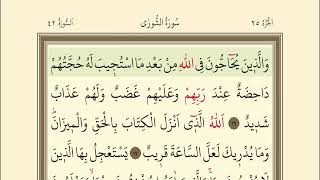 الجزء ٢٥ سورة الشورى السورة ٤٢
وَالَّذِينَ يُحَاجُّونَ فِي اللهِ مِنْ بَعْدِ مَا اسْتُجِيبَ لَهُ حُجَّتُهُمْ
دَاحِضَةٌ عِنْدَ رَبِّهِمْ وَعَلَيْهِمْ غَضَبٌ وَلَهُمْ عَذَابٌ
شَدِيدٌ ﴿١٦﴾ اَللهُ الَّذِي اَنْزَلَ الْكِتَابَ بِالْحَقِّ وَالْمِيزَانَ
وَمَا يُدْرِيكَ لَعَلَّ السَّاعَةَ قَرِيبٌ ﴿١٧﴾ يَسْتَعْجِلُ بِهَا الَّذِينَ